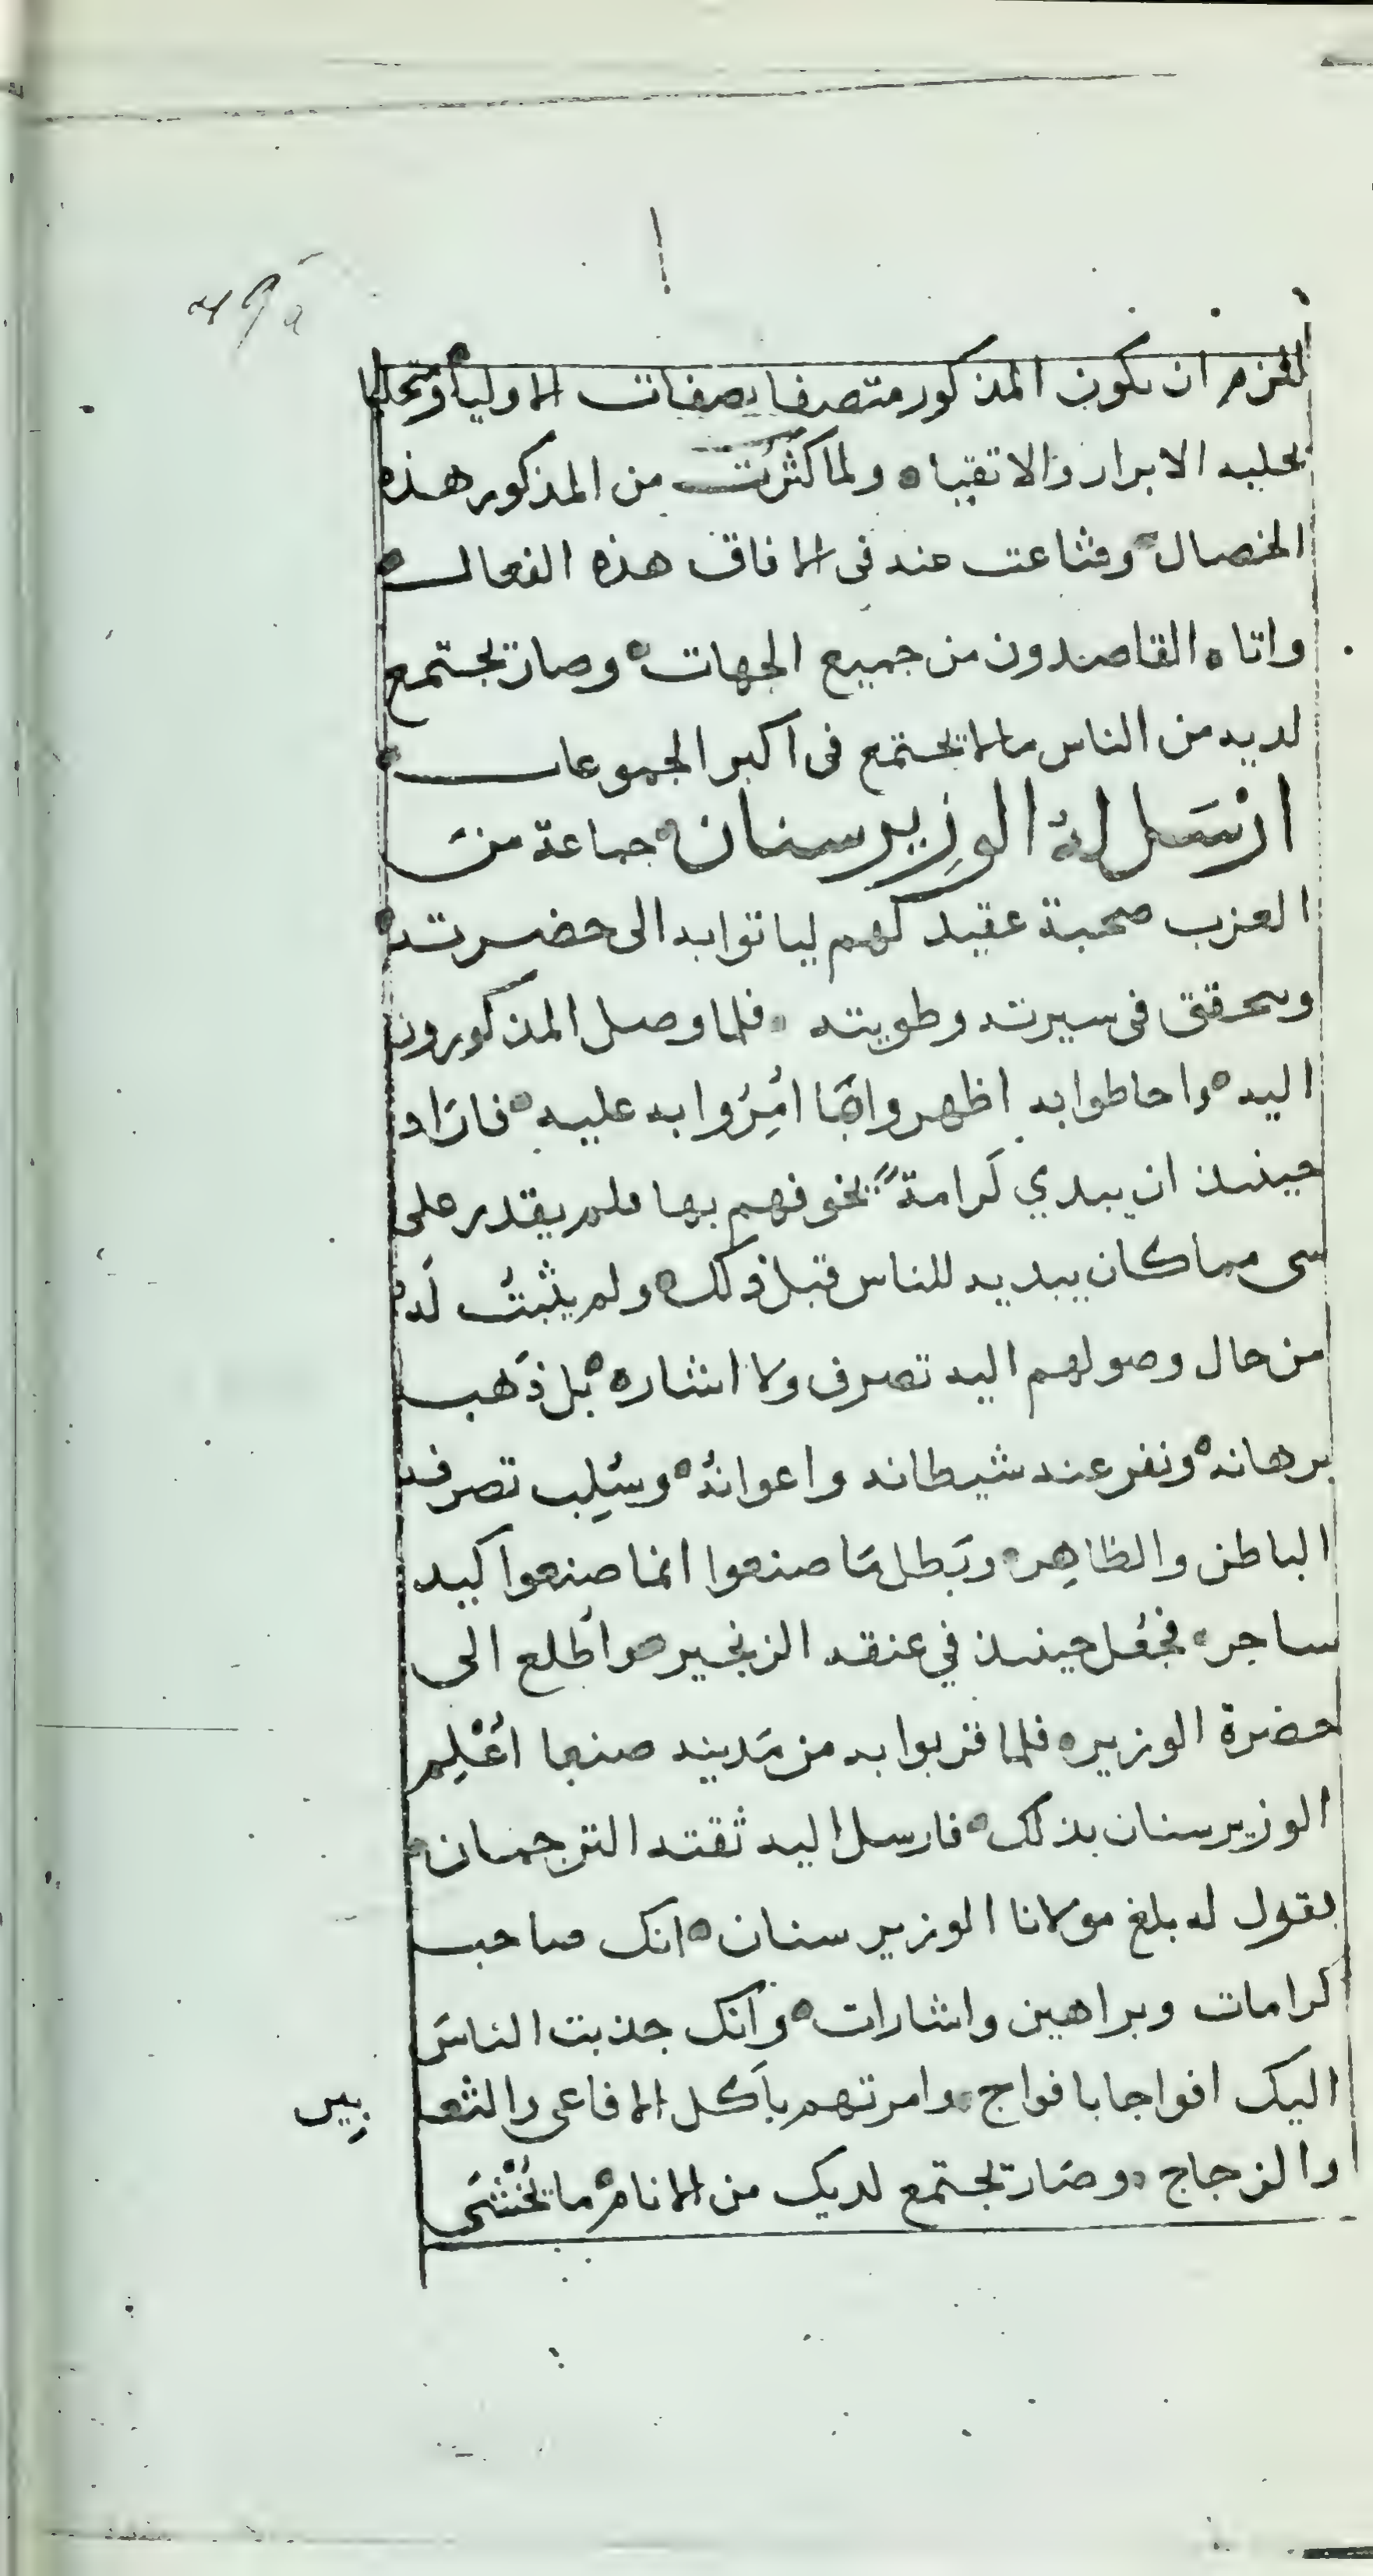 49a
لغزم ان يكون المذكور متصفا بصفات الاوليا ومتحليا
بحليه الابرار والاتقياه ولما كثرت من المذكور هذه
الخصال وشاعت عنه فى الافاق هذه الفعال
واتاه القاصدون من جميع الجهات وصار يجتمع
لديه من الناس مالا يجتمع فى اكبر المجموعات
ارْسَل له الوزير سنان جماعة من
العزب صحبة عقيد لهم لياتوا به الى حضرته
ويتحقق فى سيرته وطويته فلما وصل المذكورون
اليه واحاطوا به اظهروا مَا اُمِرُوا به عليه فارَاد
حينئذ ان يبدي كرامةً يخوفهم بها فلم يقدر على
شى مما كان يبديه للناس قبل ذلك ولم يثبتُ لَه
من حال وصولهم اليه تصرف ولا اشاره بل ذَهب
برهانه ونفر عنه شيطانه واعوانُه وسُلِب تصرفه
الباطن والظاهِر وبَطل مَا صنعوا انما صنعوا كيد
ساحر فجُعل حينئذ في عنقه الزنجير واُطلع الى
حضرة الوزير فلما قربوا به من مَدينه صنعا اُعْلِم
الوزير سنان بذلك فارسل اليه ثقته الترجمان
يقول له بلغ مولانا الوزير سنان انك صاحب
كرامات وبراهين واشارات وَانك جذبت الناسَ
اليك افواجا بافواج وامرتهم باَكل الافاعى والثعا بِين
والزجاج وصَار يجتمع لديك من الانام ما يُخْشَى